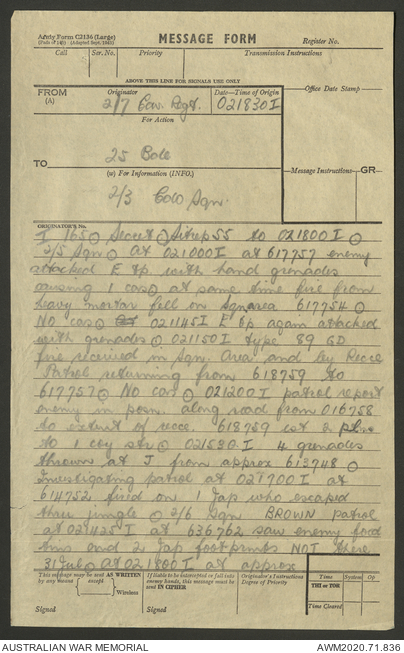 Army Form C2136 (Large)
(Pads of 100) (Adapted Sept. 1941)
MESSAGE FORM
Register No.
Call Ser. No. Priority Transmission Instructions
ABOVE THIS LINE FOR SIGNALS USE ONLY
FROM Originator Date—Time of Origin Office Date Stamp
(A) 2/7 Cav. Regt. 021830I
For Action
TO 25 Bde
(w) For Information (INFO.) Message Instructions GR
2/3 Cdo Sqn.
ORIGINATOR'S No.
I 165 ⊙ Secret ⊙ Sitrep 55 to 021800I ⊙
2/5 Sqn ⊙ at 021000I at 617757 enemy
attacked E tp. with hand grenades
causing 1 cas ⊙ at same time fire from
heavy mortar fell on Sqn area 617754 ⊙
No cas ⊙ 021145I E tp again attacked
with grenades ⊙ 021150I type 89 GD
fire received in Sqn. Area and by Recce
Patrol returning from 618759 to
617757 ⊙ No cas ⊙ 021200I patrol report
enemy in posn. along road from 016758
to extent of recce. 618759 est 2
to 1 coy str ⊙ 021530I 4 grenades
thrown at J from approx 613748 ⊙
Investigating patrol at 021700I at
614752 fired on 1 Jap who escaped
thru jungle ⊙ 2/6 Sqn BROWN patrol
at 021425I at 636762 saw enemy food
tins and 2 Jap footprints NOT there
31 Jul ⊙ at 021800I at approx
This message may be sent AS WRITTEN
by any means except Wireless
If liable to be intercepted or fall into
enemy hands, this message must be
sent IN CIPHER
Originator's Instructions
Degree of Priority
Time System Op
THI or TOR
Time Cleared
Signed Signed
AUSTRALIAN WAR MEMORIAL AWM2020.71.836